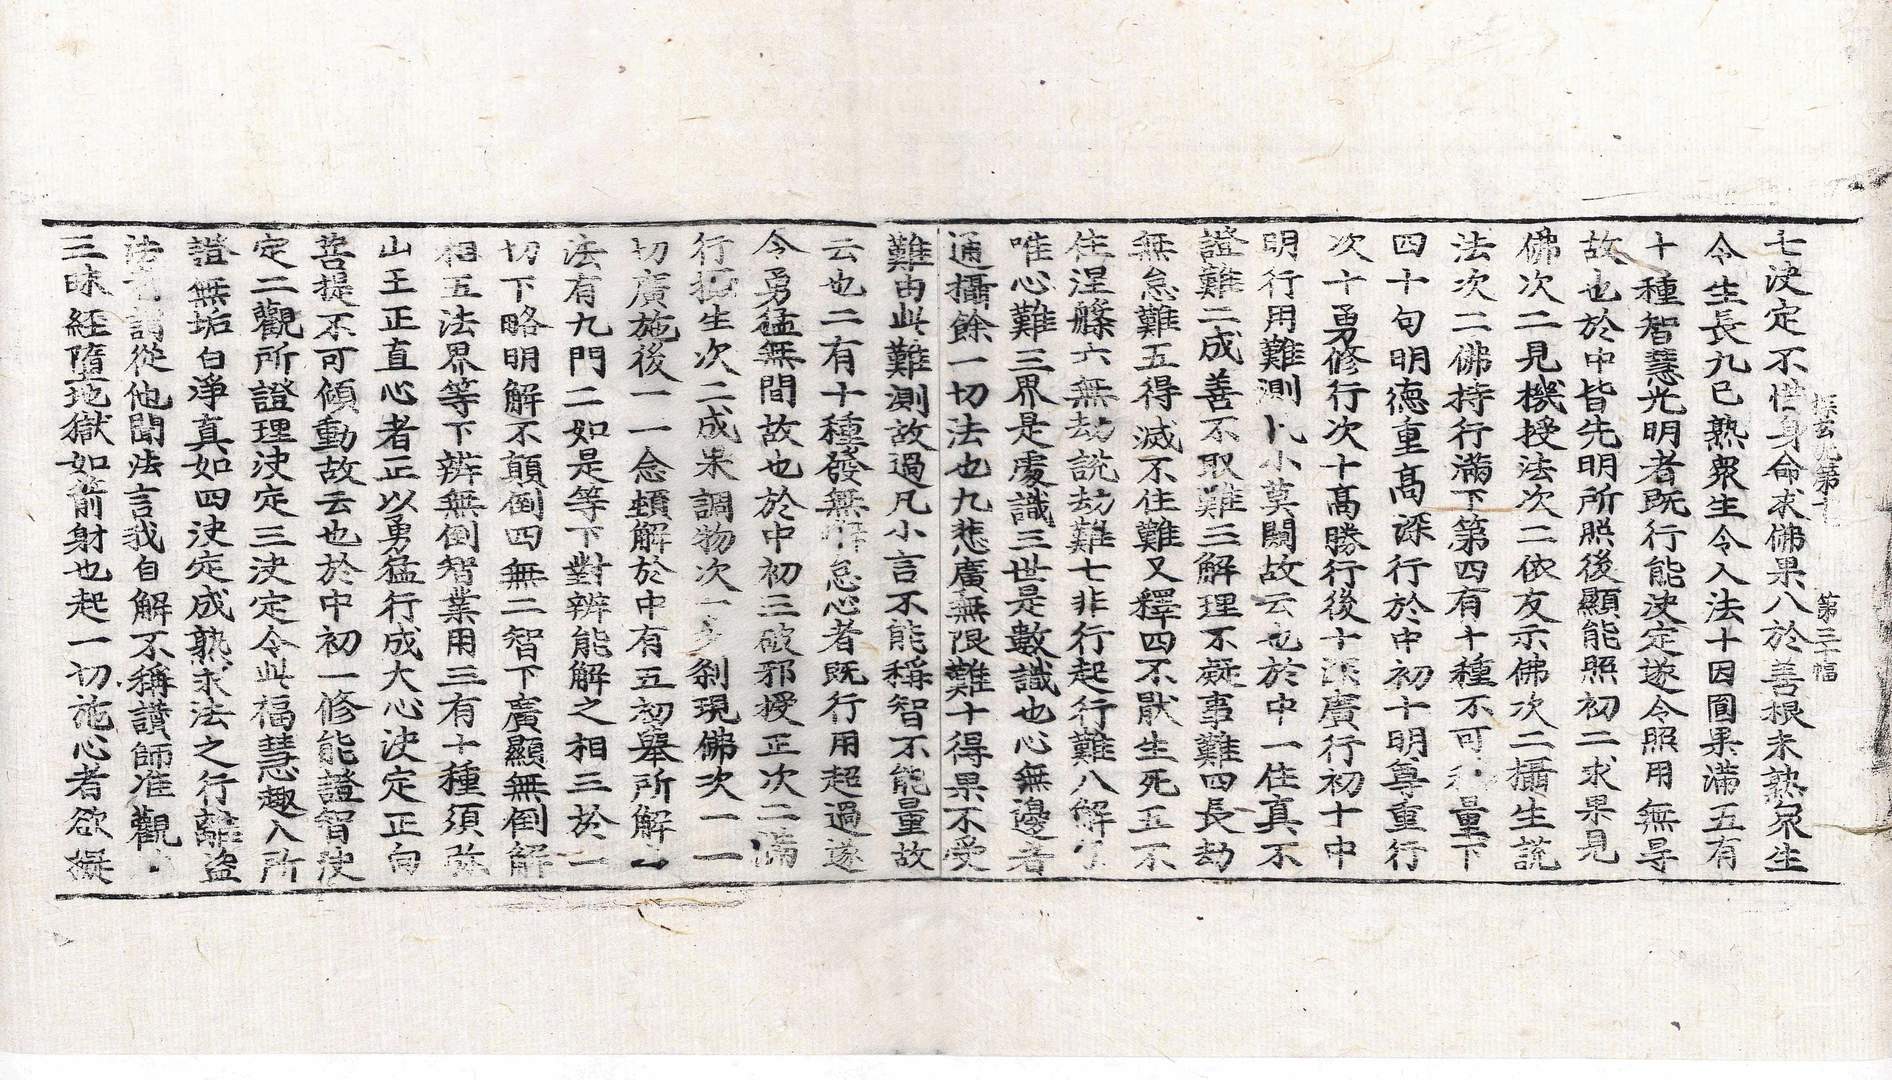 七決定不惜身命求佛果八於善根未熟衆生
探玄九第十 第三十幅
令生長九已熟衆生令入法十因圓果滿五有
十種智慧光明者既行能決定遂令照用無㝵
故也於中皆先明所照後顯能照初二求果見
佛次二見機授法次二依友示佛次二攝生說
法次二佛持行滿下第四有十種不可量下
四十句明德重髙深行於中初十明尊重行
次十勇修行次十髙勝行後十深廣行初十中
明行用難測凡小莫闚故云也於中一住真不
證難二成善不取難三解理不礙事難四長劫
無怠難五得滅不住難又釋四不猒生死五不
住涅槃六無劫說劫難七非行起行難八解了
唯心難三界是處識三世是數識也心無邊者
通攝餘一切法也九悲廣無限難十得果不受
難由此難測故過凡小言不能稱智不能量故
云也二有十種發無懈怠心者既行用超過遂
令勇猛無間故也於中初三破邪授正次二滿
行攝生次二成果調物次一多剎現佛次一一
切廣施後一一念頓解於中有五初舉所解一
法有九門二如是等下對辨能解之相三於一
切下略明解不顛倒四無二智下廣顯無倒解
相五法界等下辨無倒智業用三有十種須弥
山王正直心者正以勇猛行成大心決定正向
菩提不可傾動故云也於中初一修能證智決
定二觀所證理決定三決定令此福慧趣入所
證無垢白淨真如四決定成熟求法之行離盜
法謂從他聞法言我自解不稱讚師准觀
三昧經墮地獄如箭射也起一切施心者欲擬